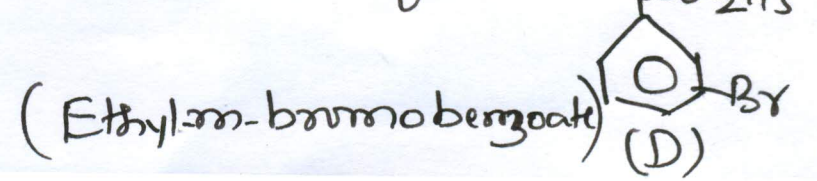 (Ethyl-m-bromobenzoate)
Br
(D)